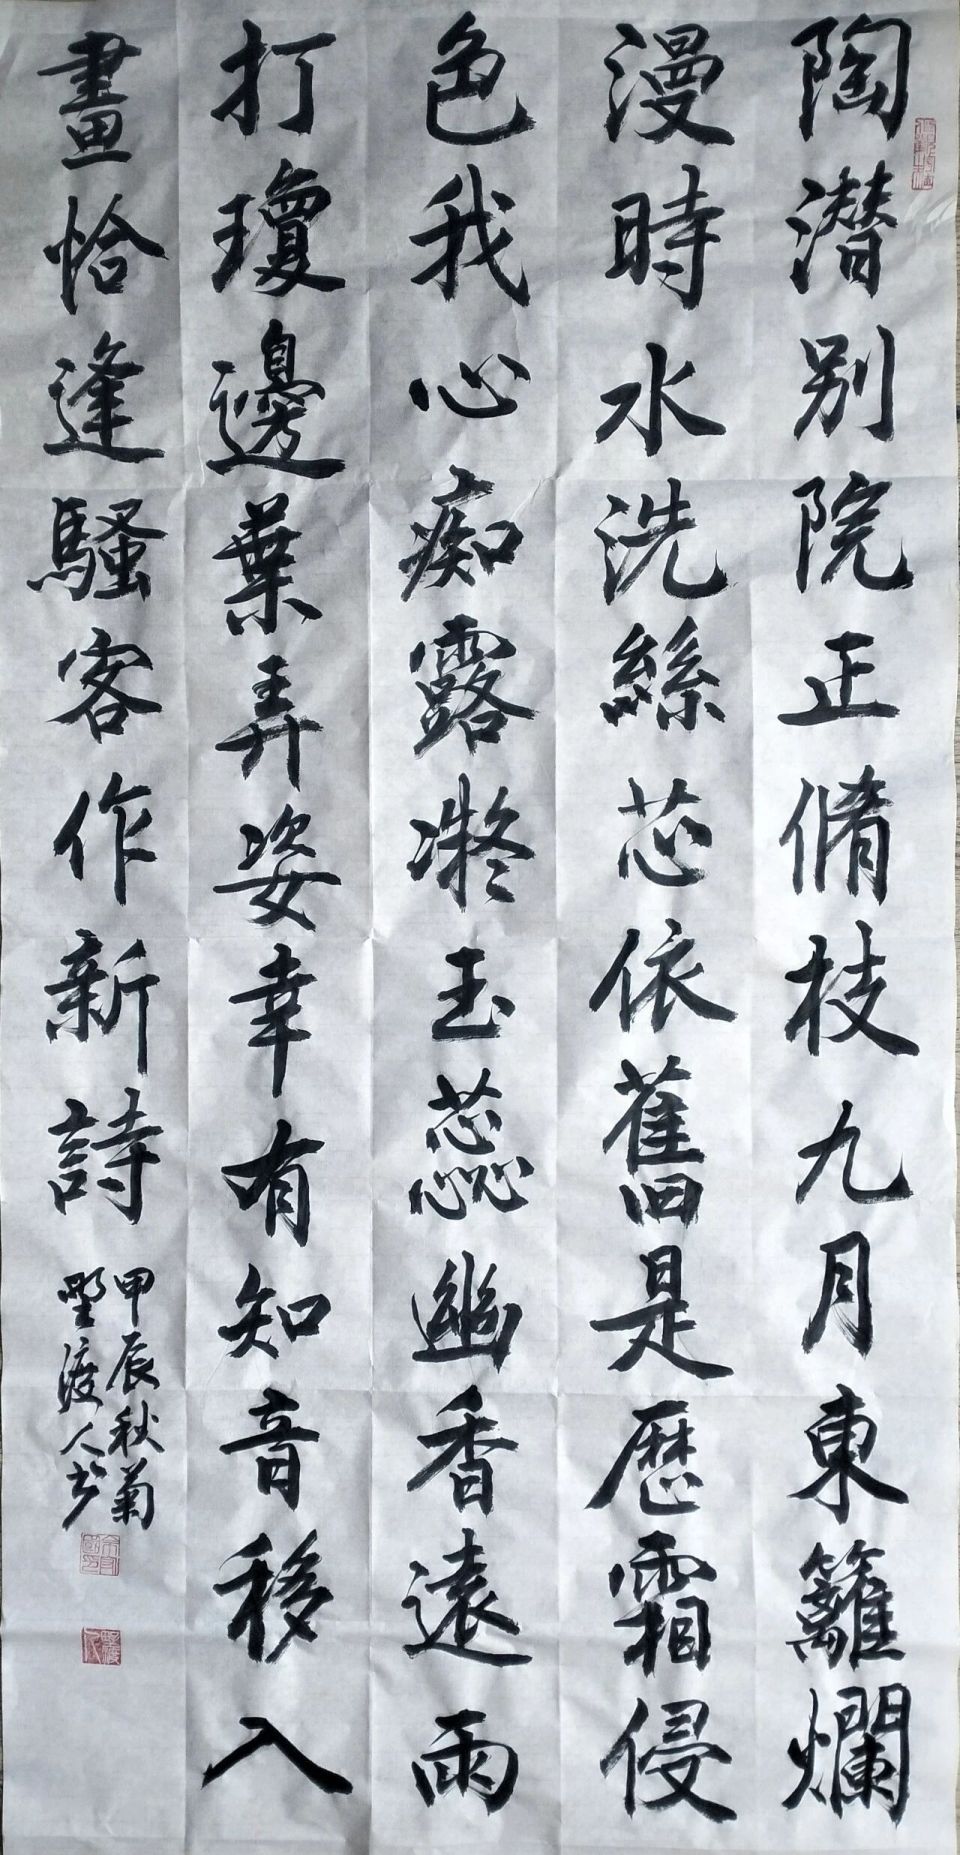 陶潜别院正脩枝九月東籬爛
漫時水洗絲芯依舊是歷霜侵
色我心痴露凝玉蕊幽香遠雨
打瓊邊葉弄姿幸有知音移入
畫恰逢騷客作新詩
甲辰秋菊
野渡人书